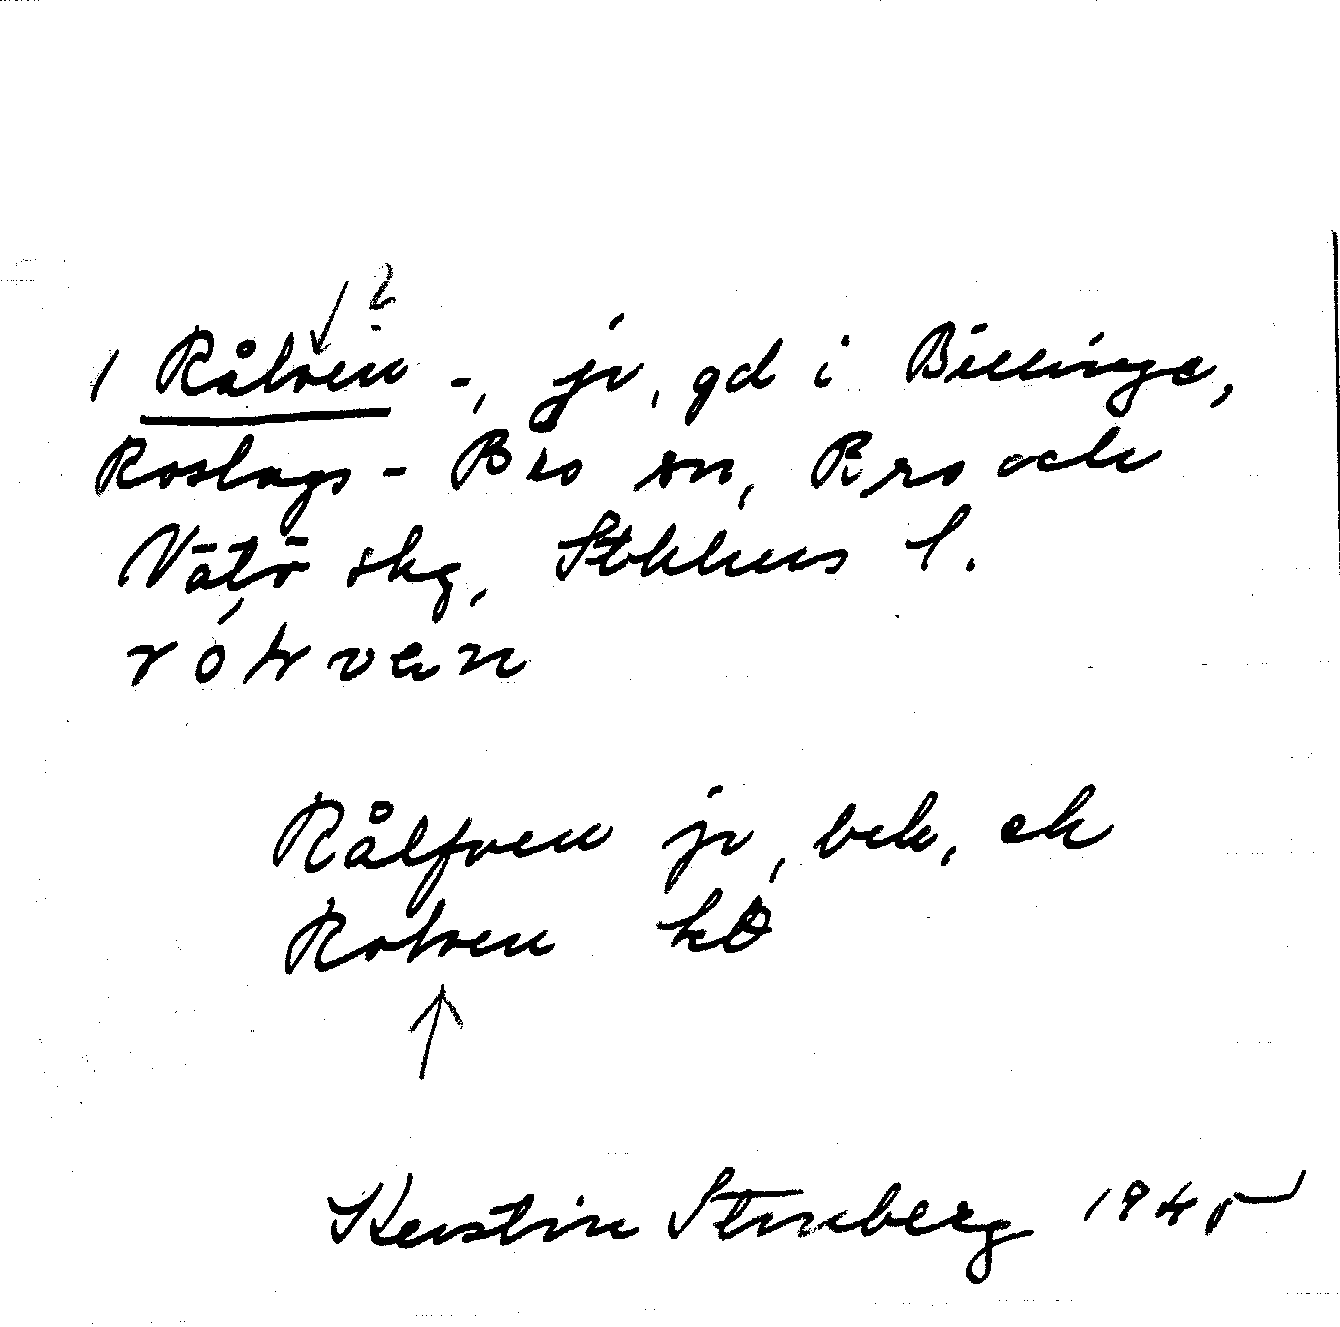 ?
1 Rålven -, jv, gd i Billinge,
Roslags-Bro sn, Bro och
Vätö skg, Sthlms l.
Rålfven jv, bek, ek
Rolven
Kerstin Stenberg 1945